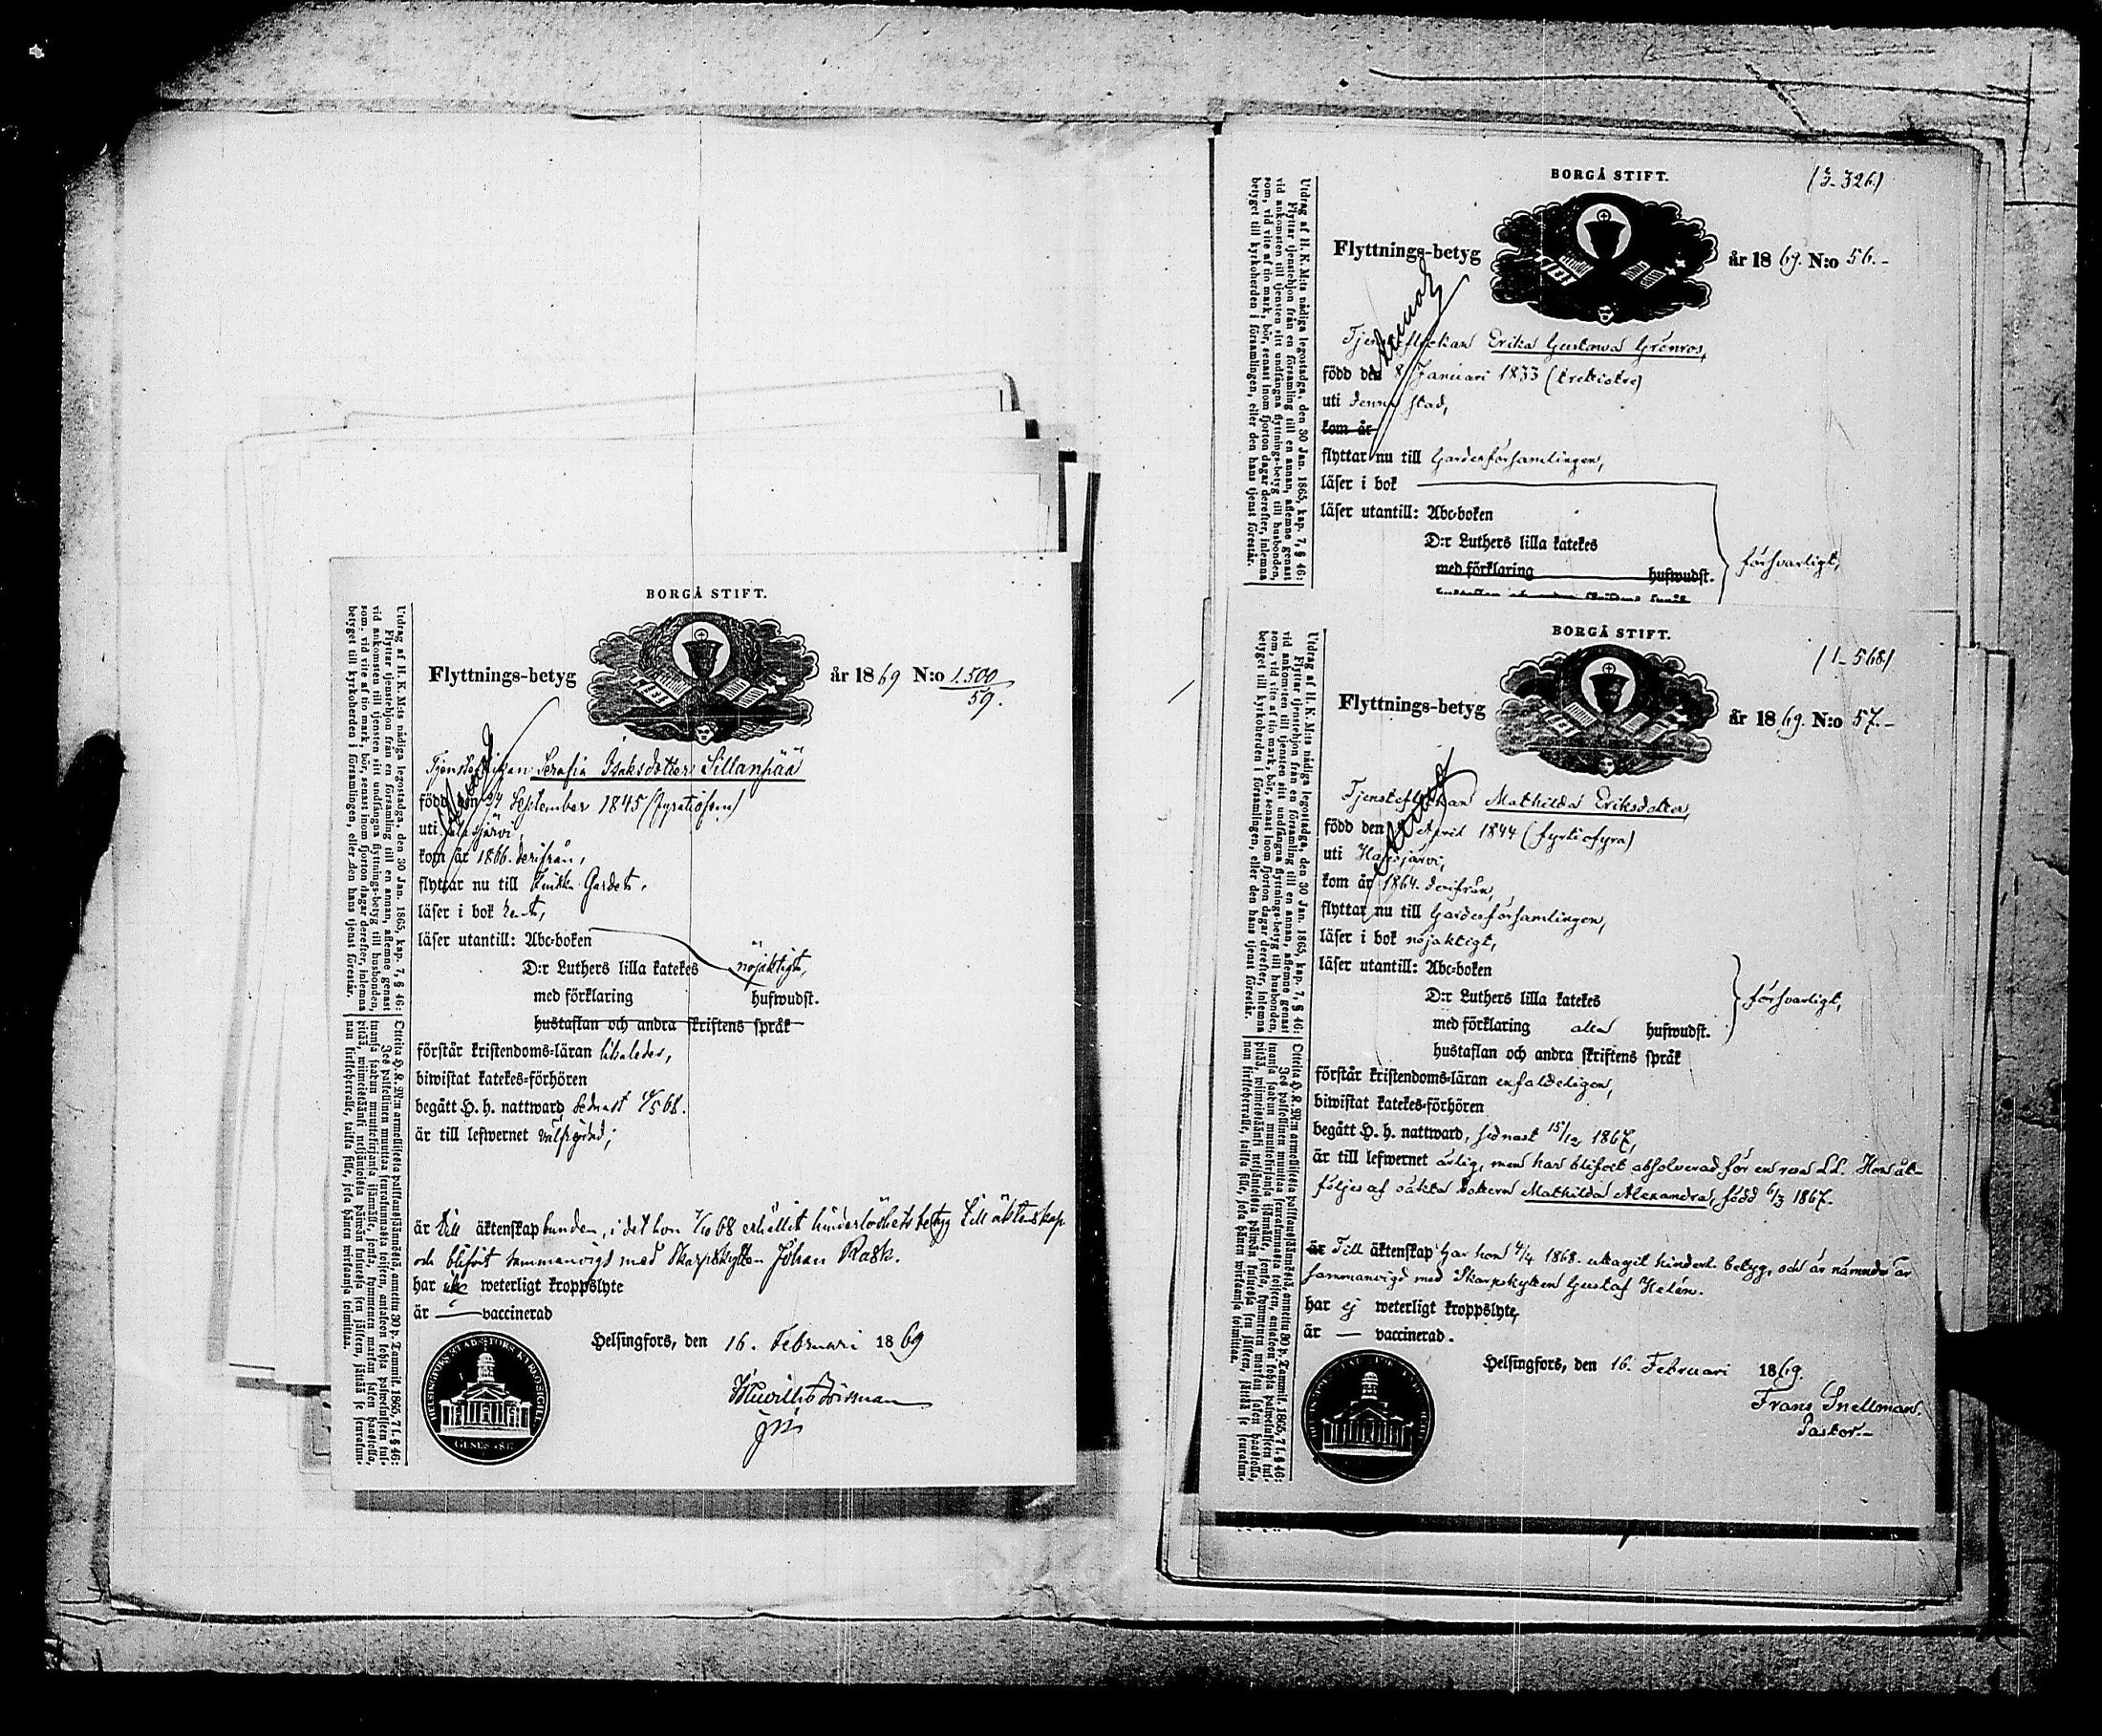 BORGÅ STIFT.
Flyttnings-betyg år 1869 N:o 1.500
59.
Tjensteflickan Serafia Isaksdotter Sillanpää
född den 24 September 1845 (fyratiofem)
uti Jalasjärvi
kom år 1866 derifrån,
flyttar nu till Finska Gardets,
läser i bok
läser utantill: Abc-boken
D:r Luthers lilla katekes nöjaktigt,
med förklaring hufwudst.
hustaflan och andra skriftens språk
förstår kristendoms-läran
biwistat katekes-förhören
begått H. h. nattward sednast /5 68.
är till lefwernet välfrejdad;
är till äktenskap bunden, i det hon /10 68 erhållit hinderlöshetsbetyg till äktenskap
och blifvit sammanvigd med Skarpskytten Johan Rask.
har icke weterligt kroppslyte
är — vaccinerad
Helsingfors, den 16. Februari 1869
HELSINGFORS STADS KYRKOSIGILL
Utdrag af H. K. M:ts nådiga legostadga, den 30 Jan. 1865, kap. 7, § 46:
Flyttar tjenstehjon från en församling till en annan, aflemne genast
vid ankomsten till tjensten sitt undfångna flyttnings-betyg till husbonden,
som, vid vite af tio mark, bör, senast inom fjorton dagar derefter, inlemna
betyget till kyrkoherden i församlingen, eller den hans tjenst förestår.
BORGÅ STIFT.
(3-326)
Flyttnings-betyg år 1869. N:o 56.-
Tjensteflickan Erika Gustava Grönros,
född den 8 Januari 1833 (trettiotre)
uti denna stad,
kom år
flyttar nu till Gardesförsamlingen,
läser i bok
läser utantill: Abc-boken
D:r Luthers lilla katekes
med förklaring hufwudst.
försvarligt,
hustaflan och andra skriftens språk
Utdrag af H. K. M:ts nådiga legostadga, den 30 Jan. 1865, kap. 7, § 46:
Flyttar tjenstehjon från en församling till en annan, aflemne genast
vid ankomsten till tjensten sitt undfångna flyttnings-betyg till husbonden,
som, vid vite af tio mark, bör, senast inom fjorton dagar derefter, inlemna
betyget till kyrkoherden i församlingen, eller den hans tjenst förestår.
BORGÅ STIFT.
(1-568)
Flyttnings-betyg år 1869. N:o 57.-
Tjensteflickan Mathilda Eriksdotter,
född den April 1844 (fyrtiofyra)
uti Hausjärvi,
kom år 1864 derifrån,
flyttar nu till Gardesförsamlingen,
läser i bok nöjaktigt,
läser utantill: Abc-boken
D:r Luthers lilla katekes försvarligt,
med förklaring alla hufwudst.
hustaflan och andra skriftens språk
förstår kristendoms-läran enfaldeligen,
biwistat katekes-förhören
begått H. h. nattward, sednast 15/12 1867,
är till lefwernet ärlig, men har blifvit absolverad för en resa L.L. Hon åt-
följes af oäkta dottern Mathilda Alexandra, född 6/3 1867.
är Till äktenskap har hon 4/4 1868 uttagit hinderl. betyg, och är nämnde år
sammanvigd med Skarpskytten Gustaf Helén.
har ej weterligt kroppslyte,
är — vaccinerad.
Helsingfors, den 16. Februari 1869.
Frans Snellman.
Pastor-
Utdrag af H. K. M:ts nådiga legostadga, den 30 Jan. 1865, kap. 7, § 46:
Flyttar tjenstehjon från en församling till en annan, aflemne genast
vid ankomsten till tjensten sitt undfångna flyttnings-betyg till husbonden,
som, vid vite af tio mark, bör, senast inom fjorton dagar derefter, inlemna
betyget till kyrkoherden i församlingen, eller den hans tjenst förestår.